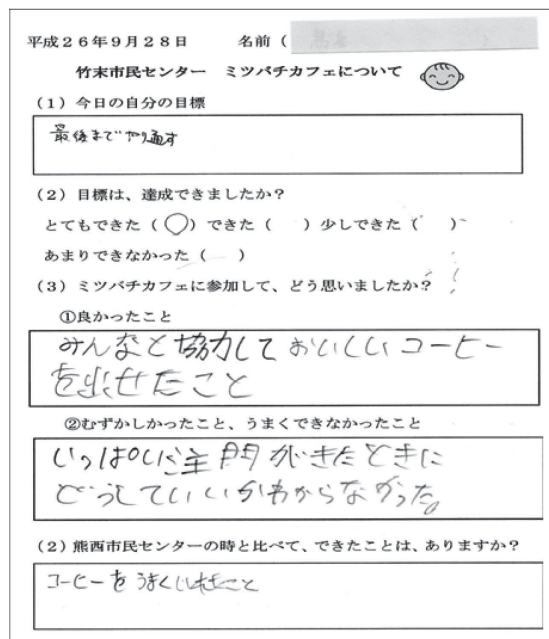 平成26年9月28日 名前(
竹末市民センター ミツバチカフェについて
(1)今日の自分の目標
最後までやり通す
(2)目標は、達成できましたか?
とてもできた(○)できた( )少しできた( )
あまりできなかった( )
(3)ミツバチカフェに参加して、どう思いましたか?
①良かったこと
みんなと協力しておいしいコーヒー
を出せたこと
②むずかしかったこと、うまくできなかったこと
いっぱいに注門がきたときに
どうしていいかわからなかった。
(2)熊西市民センターの時と比べて、できたことは、ありますか?
コーヒーをうまくいれたこと